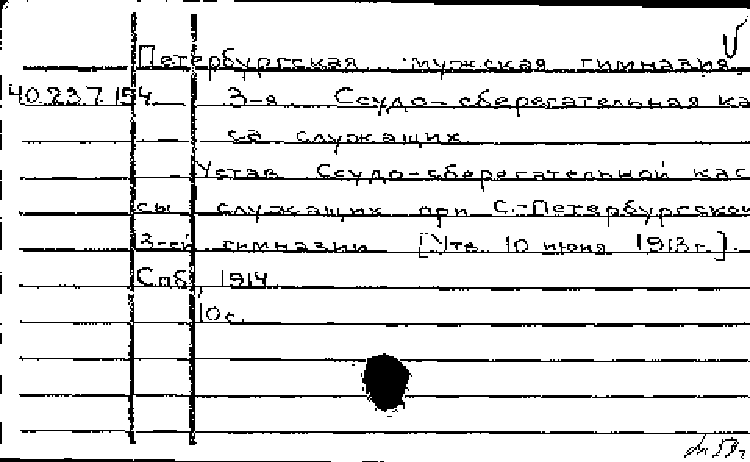 Петербургская мужская гимназия,
40.23.7.154 3-я Ссудо-сберегательная ка
са служащих
Устав Ссудо-сберегательной кас
сы служащих при С.-Петербургской
3-ей гимназии [Утв. 10 июня 1913 г.].
Спб, 1914
10 с.